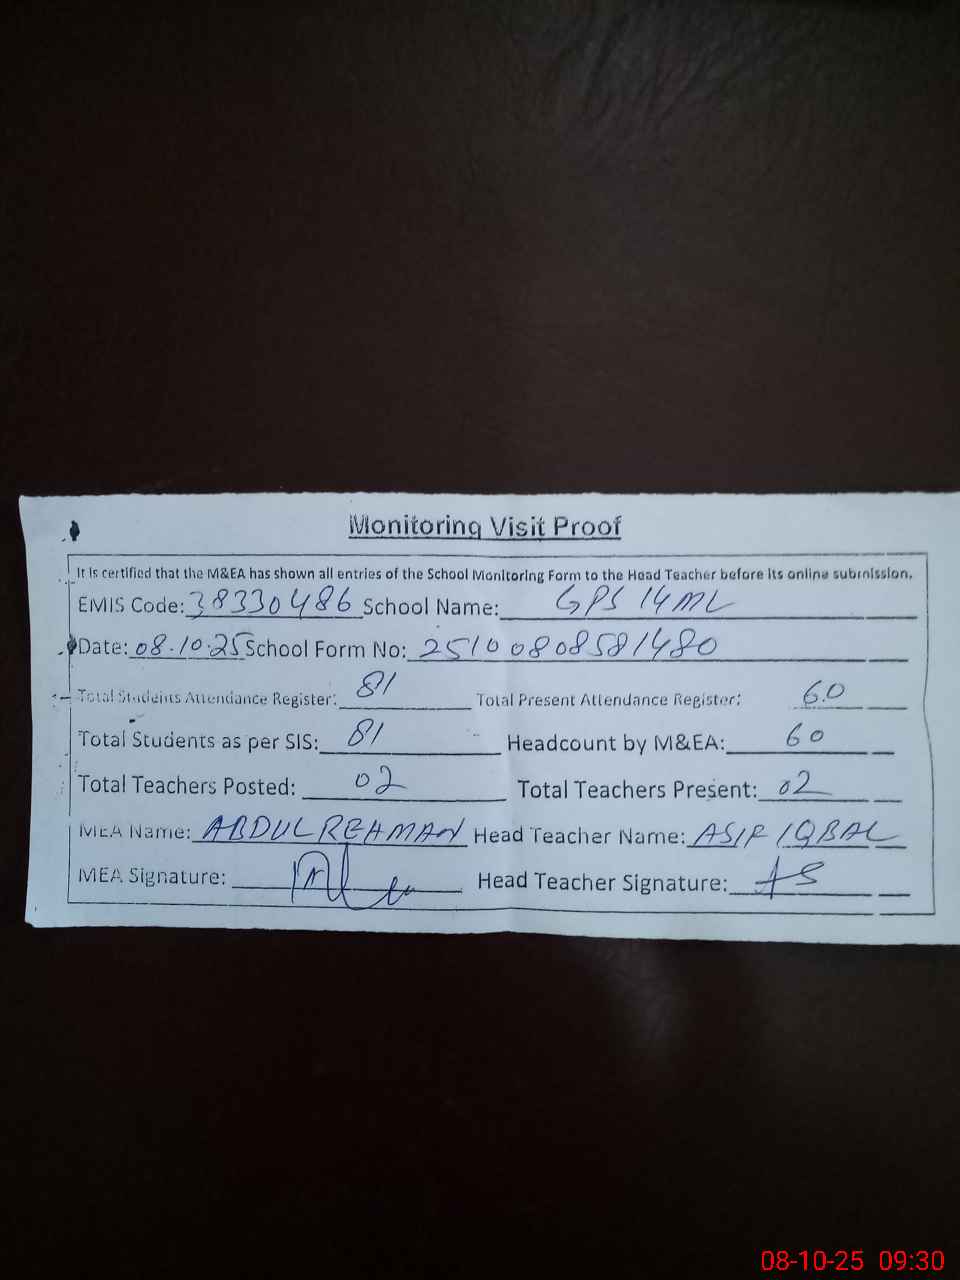 Monitoring Visit Proof
It is certified that the M&EA has shown all entries of the School Monitoring Form to the Head Teacher before its online submission.
EMIS Code: 38330486 School Name: GPS 14 ML
Date: 08.10.25 School Form No: 25100808581480
Total Students Attendance Register: 81 Total Present Attendance Register: 60
Total Students as per SIS: 81 Headcount by M&EA: 60
Total Teachers Posted: 02 Total Teachers Present: 02
MEA Name: ABDUL REHMAN Head Teacher Name: ASIF IQBAL
MEA Signature: Head Teacher Signature: AS
08-10-25 09:30